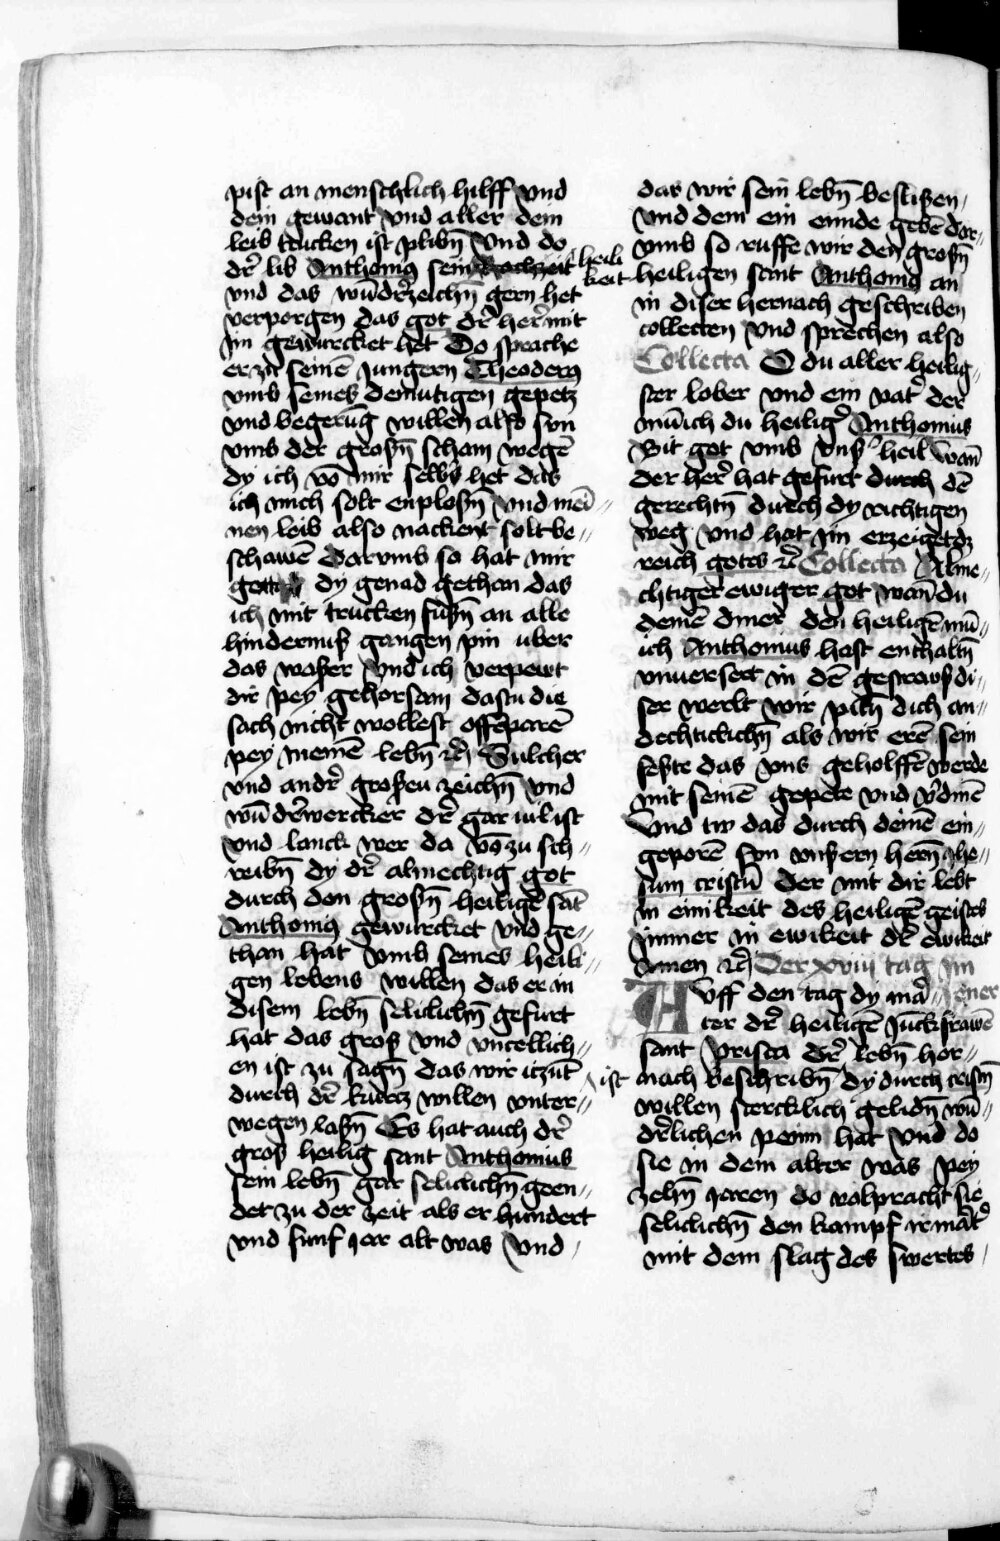 pist an menschlich hilff vnd
dein gewant vnd aller dem
leib trucken ist plibn̄ Vnd do
dr̄ lib Anthonig sein heili
keit
vnd das wūdr̄zeichn̄ gern het
verporgen das got dr̄ her̄ mit
jm gewurcket het Do sprache
er zu seinē jungern Theoderg
vmb seines demutigen gepetz
vnd begerūg willen also sun
vmb der grosn̄ scham wegē
dy ich vō mir selbs het das
ich mich solt enplosn̄ vnd mei
nen leib also nackent solt be„
schawē Darvmb so hat mir
gott dy genad gethan das
ich mit trucken fusn̄ an alle
hindernuß gangen pin vber
das waßer Vnd ich verpewt
dir pey gehorsam dastu die
sach nicht wollest offēparē
pey meinē lebn̄ rc̄ Sulcher
vnd andr̄ großen zeichn̄ vnd
wūdr̄wercker dr̄ gar vil ist
vnd lanck wer da vō zu sch„
reibn̄ dy dr̄ almechtig got
durch den grosn̄ heiligē sāt
Anthonig gewurcket vnd ge„
than hat vmb seines heili„
gen lebens willen das er in
disem lebn̄ seliclichn̄ gefurt
hat das groß vnd vncellich„
en ist zu sagn̄ das wir itzūt
durch dr̄ kurcz willen vnter„
wegen lasn̄ Es hat auch dr̄
gros heilig sant Anthonius
sein lebn̄ gar seliclichn̄ geen„
det zu der zeit als er hundert
vnd funf jar alt was Vnd
das wir sein lebn̄ beslißen
vnd dem ein ennde gebē dar„
vmb so ruffe wir den grosn̄
heiligen sant Anthonig an
in diser hernach geschriben
collecten vnd sprechen also
Collecta O du aller heilig„
ster lober vnd ein vat' der
mūnich du heilig' Anthonius
Bit got vmb vns' heil wan̄
der her̄ hat gefurt durch dē
gerechtn̄ durch dy richtigen
weg vnd hat jm erzeiget dz
reich gotes rc̄ Collecta Alme„
chtiger ewiger got wan̄ du
deinē diner den heiligē mū„
ich Anthonius hast enthaltn̄
vnuersert in dē gestrawß di„
ser werlt wir pitn̄ dich an„
dechticlichn̄ als wir erē sein
feste das vns geholffē werde
mit seinē gepete vnd v'dinē
Vnd tw das durch deinē ein„
geporē sun vnsern hern̄ jhe„
sum cristū der mit dir lebt
in einikeit des heiligē geistes
jmmer in ewikeit dr̄ ewikeit
Amen rc̄ Der xviij tag jm
Jener
Auff den tag dy mar„
ter dr̄ heiligē Junckfrawē
sant Prisca dr̄ lebn̄ her„
nach beschribn̄ ist dy durch cristū
willen stercklich gelidn̄ wū„
dr̄lichen peinn hat vnd do
sie in dem alter was pey
zehn̄ jaren do volpracht sie
seliclichn̄ den kampf jr mart'
mit dem slag des swertes